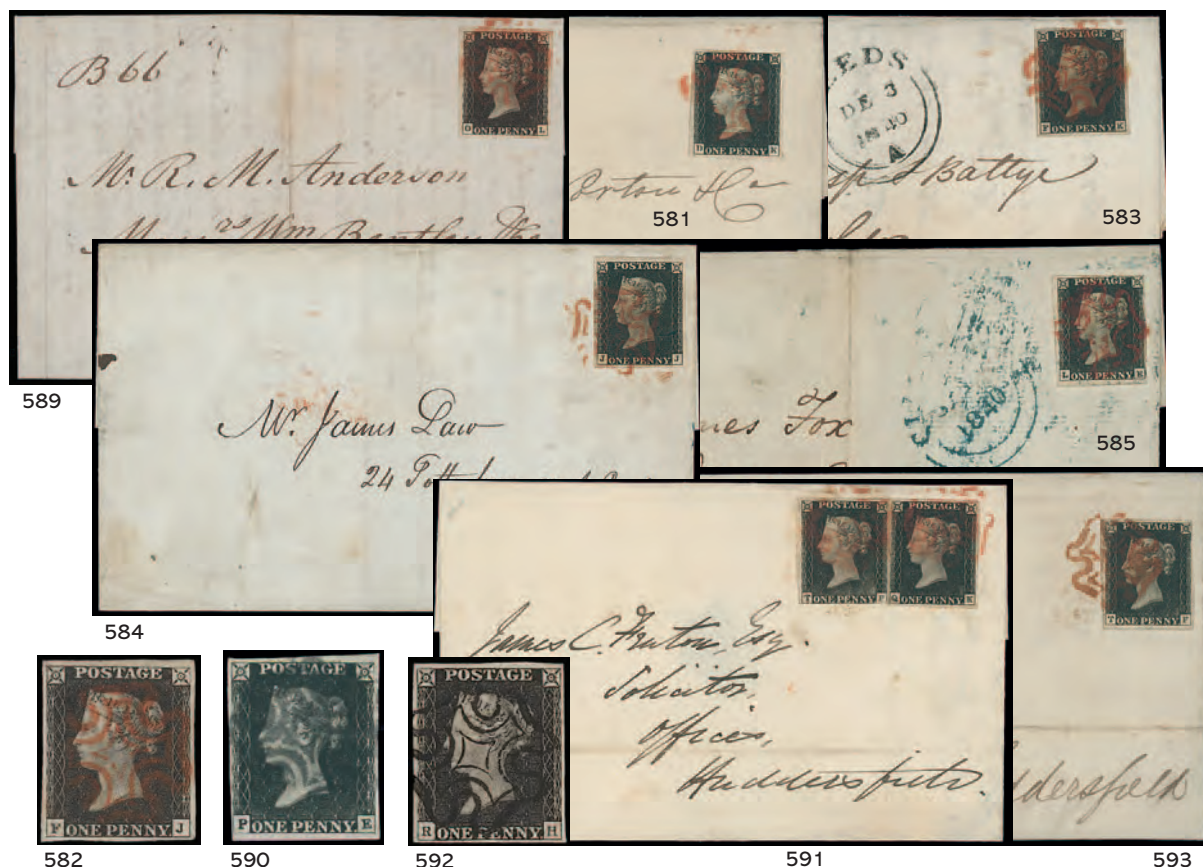 B 66
POSTAGE
O L
ONE PENNY
Mr. R. M. Anderson
589
POSTAGE
D K
ONE PENNY
Orton & Co
581
EDS
DE 3
1840
A
POSTAGE
F K
ONE PENNY
Battye
583
POSTAGE
J J
ONE PENNY
Mr. James Law
24
584
POSTAGE
L E
ONE PENNY
1840
mes Fox
585
POSTAGE POSTAGE
T F
ONE PENNY
ONE PENNY
James C. Fenton, Esq.
Solicitor,
Offices,
Huddersfield.
591
POSTAGE
T F
ONE PENNY
ddersfield
593
POSTAGE
F J
ONE PENNY
582
POSTAGE
P E
ONE PENNY
590
POSTAGE
R H
ONE PENNY
592